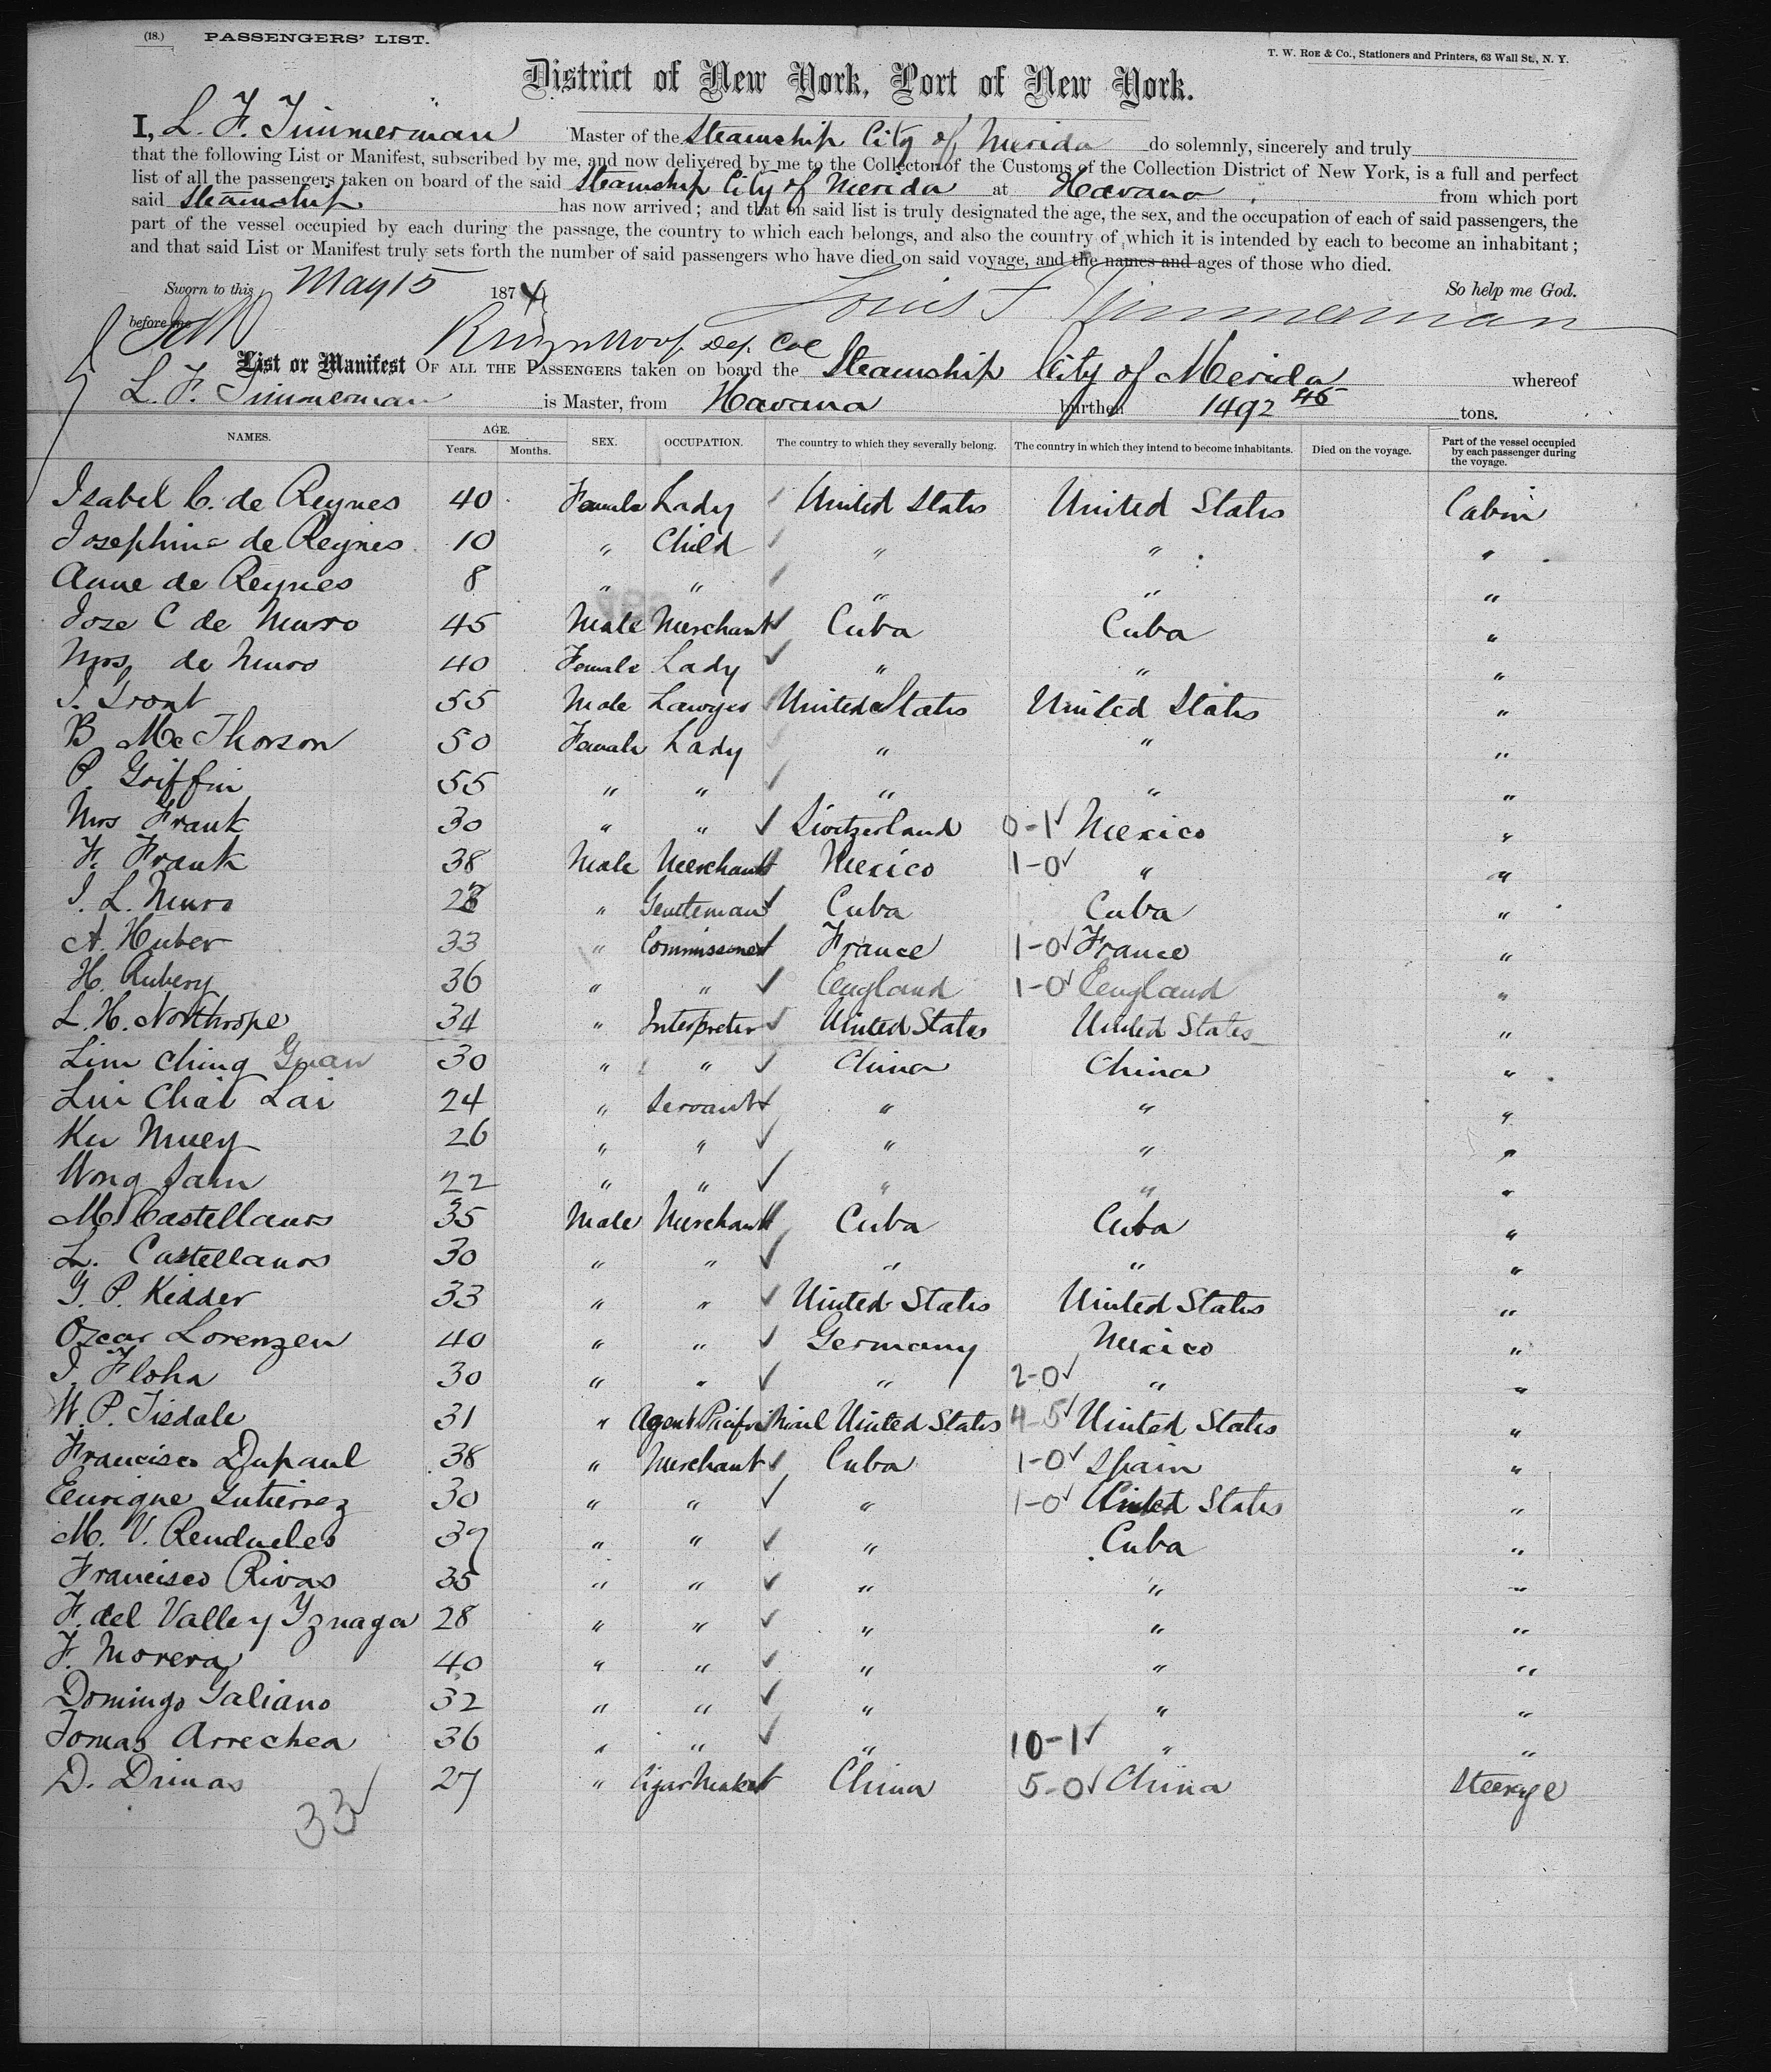 (18.) PASSENGERS' LIST.
T. W. ROE & Co., Stationers and Printers, 63 Wall St., N. Y.
District of New York, Port of New York.
I, L. F. Timmerman Master of the Steamship City of Merida do solemnly, sincerely and truly
that the following List or Manifest, subscribed by me, and now delivered by me to the Collector of the Customs of the Collection District of New York, is a full and perfect
list of all the passengers taken on board of the said Steamship City of Merida at Havana from which port
said Steamship has now arrived; and that on said list is truly designated the age, the sex, and the occupation of each of said passengers, the
part of the vessel occupied by each during the passage, the country to which each belongs, and also the country of which it is intended by each to become an inhabitant;
and that said List or Manifest truly sets forth the number of said passengers who have died on said voyage, and the names and ages of those who died.
Sworn to this May 15 1874 So help me God.
Louis F Timmerman
before me Dep. Col
List or Manifest OF ALL THE PASSENGERS taken on board the Steamship City of Merida whereof
L. F. Timmerman is Master, from Havana burthen 1492 45 tons.
NAMES. AGE. Years. Months. SEX. OCCUPATION. The country to which they severally belong. The country in which they intend to become inhabitants. Died on the voyage. Part of the vessel occupied by each passenger during the voyage.
Isabel C. de Reynes 40 Female Lady United States United States Cabin
Josephine de Reynes 10 " Child " " "
Anne de Reynes 8 " " " " "
Jose C de Muro 45 Male Merchant Cuba Cuba "
Mrs de Muro 40 Female Lady " " "
55 Male Lawyer United States United States "
B McThorson 50 Female Lady " " "
P. Griffin 55 " " " " "
Mrs Frank 30 " " Switzerland 0-1 Mexico "
F. Frank 38 Male Merchant Mexico 1-0 " "
J. L. Muro " Gentleman Cuba Cuba "
A. Huber 33 " Commissioner France 1-0 France "
H. Rubery 36 " " England 1-0 England "
L. H. Northrope 34 " Interpreter United States United States "
Lim Ching Guan 30 " " China China "
Lui Chai Lai 24 " Servant " " "
Ku Muey 26 " " " " "
Wong Sam 22 " " " " "
M. Castellanos 35 Male Merchant Cuba Cuba "
L. Castellanos 30 " " " " "
G. P. Kidder 33 " " United States United States "
Oscar Lorenzen 40 " " Germany Mexico "
J. Floha 30 " " " 2-0 " "
W. P. Tisdale 31 " Agent Pacific Mail United States 4-5 United States "
Francisco Dupaul 38 " Merchant Cuba 1-0 Spain "
Enrique Gutierrez 30 " " " 1-0 United States "
M. V. Rendueles 39 " " " Cuba "
Francisco Rivas 35 " " " " "
F. del Valle y Yznaga 28 " " " " "
F. Morera 40 " " " " "
Domingo Galiano 32 " " " " "
Tomas Arrechea 36 " " " 10-1 " "
D. Dimas 27 " Cigar Maker China 5-0 China Steerage
33